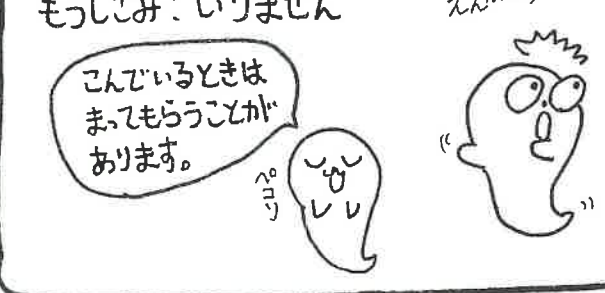 もうしこみ：いりません
こんでいるときは
まってもらうことが
あります。
ペコリ